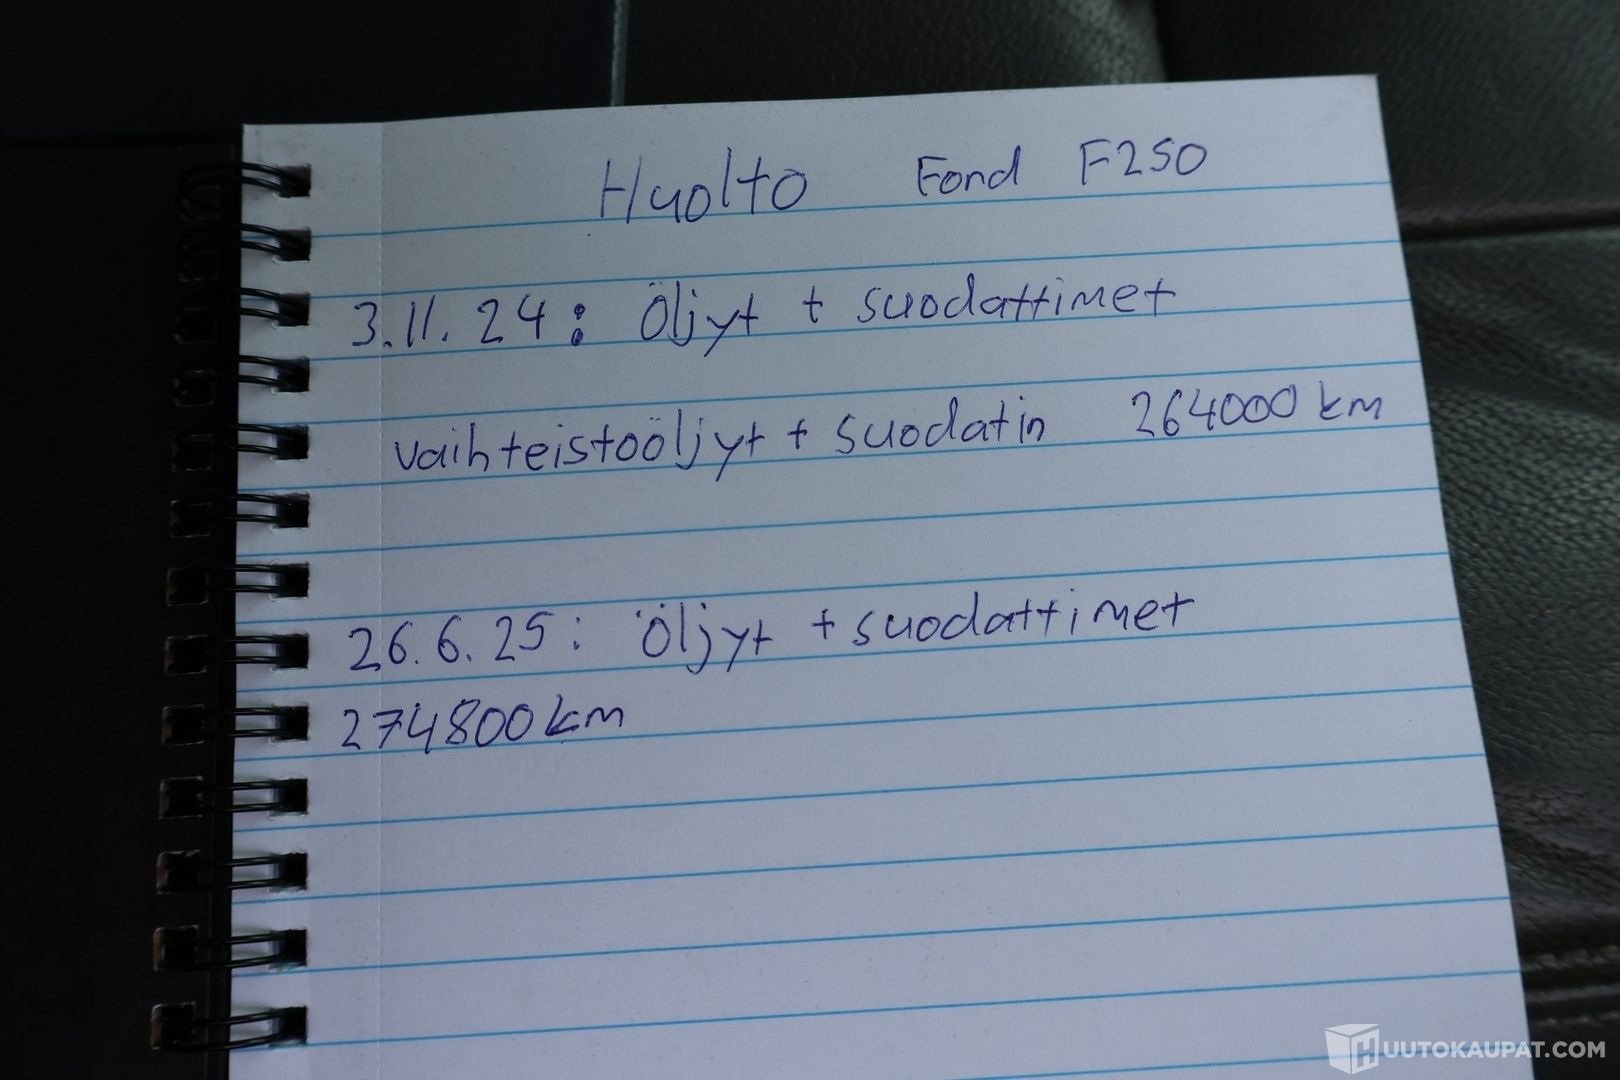 Huolto Ford F250
3.11.24: Öljyt + suodattimet
vaihteistoöljyt + suodatin 264000 km
26.6.25: Öljyt + suodattimet
274800 km
HUUTOKAUPAT.COM